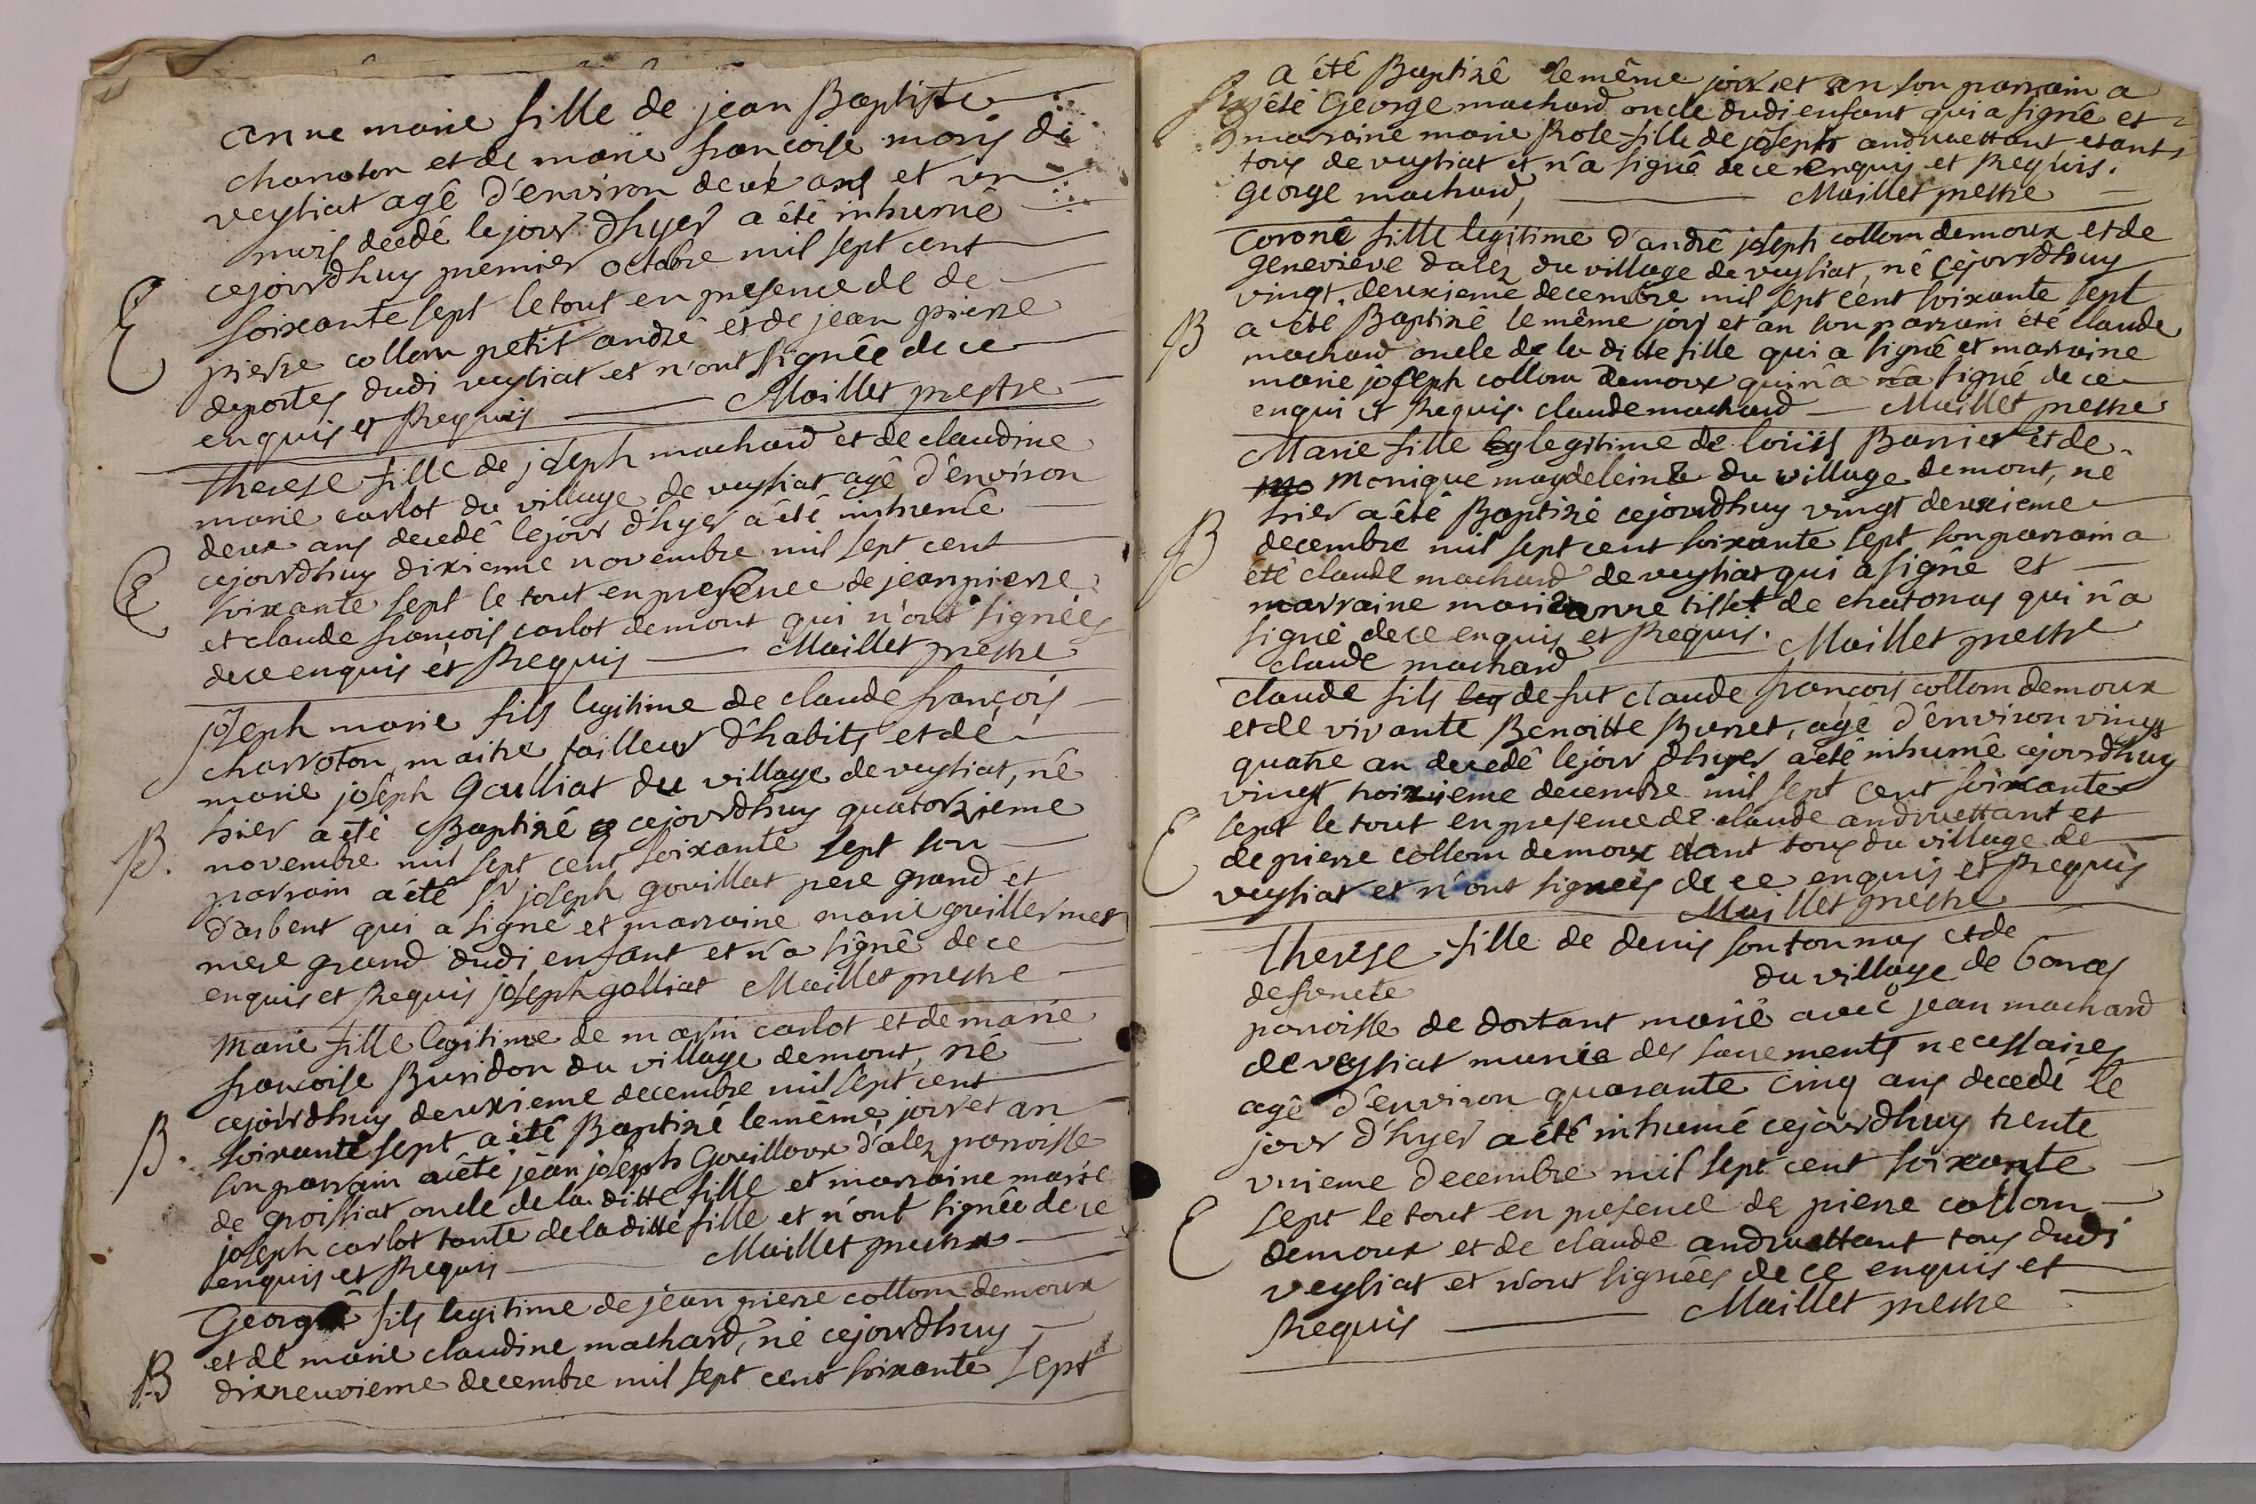 anne marie fille de jean Baptiste
charroton et de marie françoise moris de
veysiat agê d'environ deux ans et un
mois decedé le jour d'hyer a êté inhumê
cejourdhuy premier octobre mil sept cent
E soixante sept le tout en presence de de
pierre collom petit andrê et de jean pierre
deportes dudi veysiat et n'ont signêe de ce
enquis et Requis Maillet prestre
therese fille de joseph machard et de claudine
marie carlot du village de veysiat agê d'environ
deux ans decedê le jour d'hyer a êtê inhumê
cejourdhuy dixieme novembre mil sept cent
E soixante sept le tout en presence de jean pierre
et claude françois carlot demont qui n'ont signêes
de ce enquis et Requis Maillet prestre
joseph marie fils legitime de claude françois
charroton maitre tailleur d'habits et de
marie joseph Goulliat du village de veysiat, nê
hier a êté Baptizé cejourdhuy quatorzieme
B. novembre mil sept cent soixante sept son
parrain a êtê Sr joseph govillat pere grand et
d'arbent qui a signê et marraine marie guillermet
mere grand dudi enfant et n'a signê de ce
enquis et Requis joseph golliat Maillet prestre
Marie fille legitime de marin carlot et de marie
francoise Buridon du village demont, nê
cejourdhuy deuxieme decembre mil sept cent
B. soixante sept a êtê Baptizê le même jour et an
son parrain a êté jean joseph Govilloux d'alez paroisse
de groissiat oncle de la ditte fille et marraine marie
joseph carlot tante de la ditte fille et n'ont signêe de ce
enquis et Requis Maillet prestre
George fils legitime de jean pierre collom demoux
et de marie claudine machard, né cejourdhuy
B dixneuvieme decembre mil sept cent soixante sept
a êtê Baptizê le même jour et an son parrain a
êtê George machard oncle dudi enfant qui a signê et
marraine marie Rose fille de joseph andruettant etant
tous de veysiat et n'a signê de ce enquis et Requis.
George machard, Maillet prestre
Corone fille legitime d'andrê joseph collom demoux et de
Genevieve dalez du village de veysiat, nê cejourdhuy
vingt deuxieme decembre mil sept cent soixante sept
B a êtê Baptizê le même jour et an son parrain êté claude
machard oncle de la ditte fille qui a signê et marraine
marie joseph collom demoux qui n'a n'a signé de ce
enqui et Requis. claude machard Maillet prestre
Marie fille legitime de loüis Barrier et de
Monique magdeleine du village demont, né
hier a êté Baptizé cejourdhuy vingt deuxieme
B decembre mil sept cent soixante sept son parrain a
êtê claude machard de veysiat qui a signê et
marraine marianne tisset de chatonas qui n'a
signé de ce enquis et Requis. Maillet prestre
claude machard
claude fils de fut claude françois collom demoux
et de vivante Benoitte Burret, agê d'environ vingt
quatre an decedê le jour d'hyer a êté inhumê cejourdhuy
vingt troizieme decembre mil sept cent soixante
E sept le tout en presence de claude andruettant et
de pierre collom demoux etant tous du village de
veysiat et n'ont signeés de ce enquis et Requis
Maillet prestre
therese fille de denis fontonnas et de
defuncte du village de bonas
paroisse de dortant marié avec jean machard
de veysiat munie des sacrements necessaires
agê d'environ quarante cinq ans decedé le
jour d'hyer a êtê inhumé cejourdhuy trente
unieme decembre mil sept cent soixante
E sept le tout en presence de pierre collom
demoux et de claude andruettant tous dudi
veysiat et n'ont signêes de ce enquis et
Requis Maillet prestre